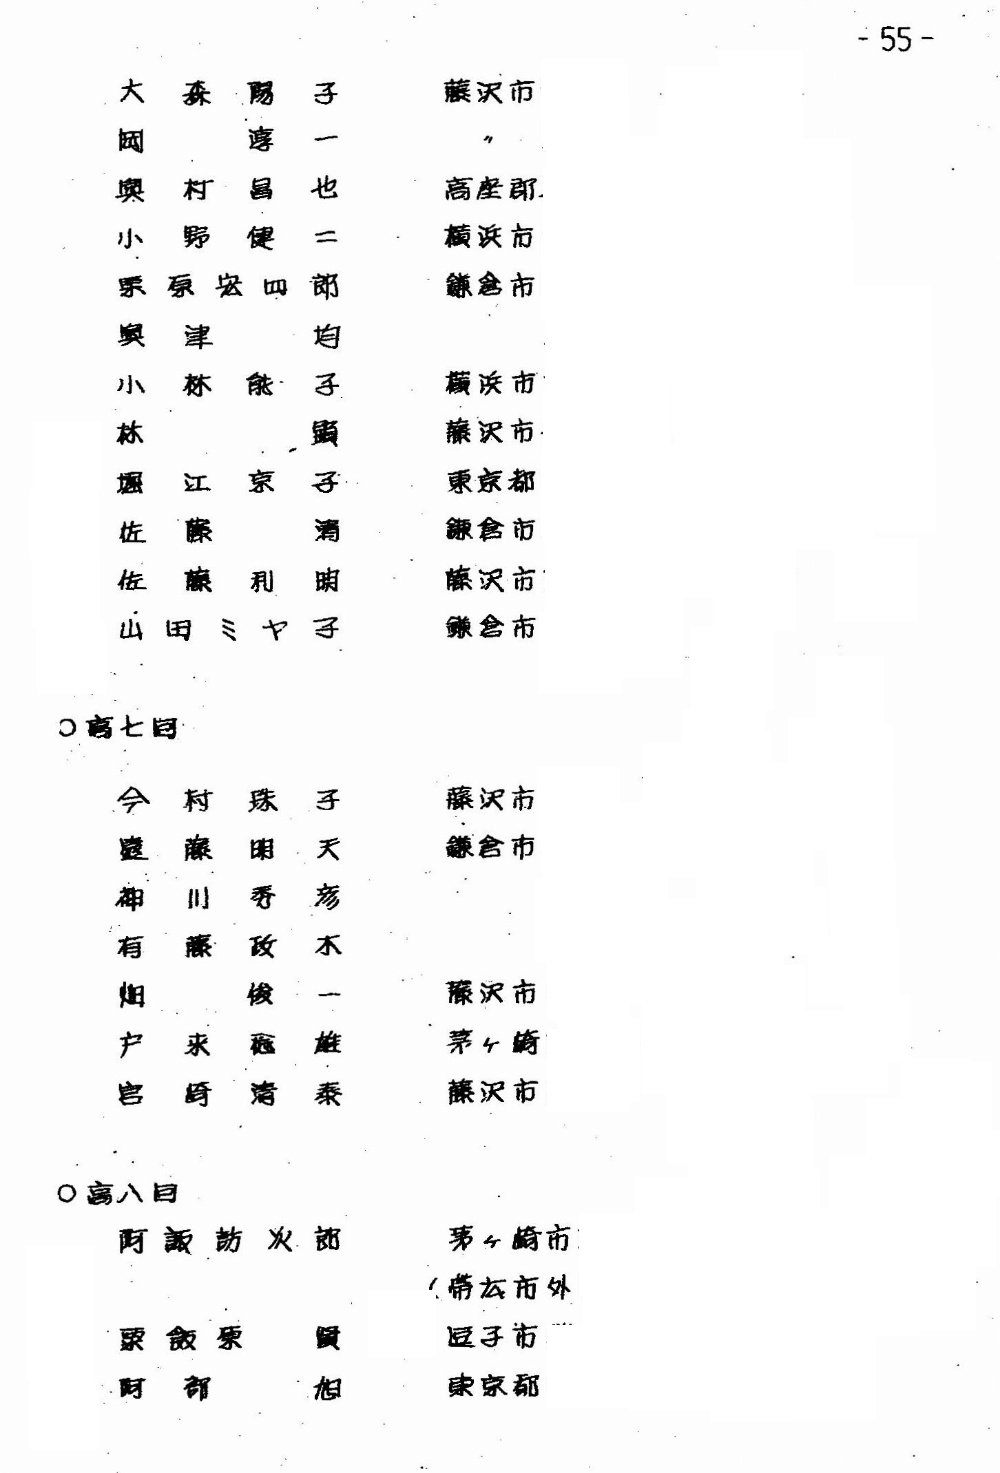 - 55 -
大森陽子 藤沢市
岡淳一 〃
奥村昌也 高座郡
小野健二 横浜市
栗原宏四郎 鎌倉市
奥津均
小林能子 横浜市
林 藤沢市
堀江京子 東京都
佐藤清 鎌倉市
佐藤利明 藤沢市
山田ミヤ子 鎌倉市
○高七回
今村珠子 藤沢市
遠藤明夫 鎌倉市
神川秀彦
有藤政木
畑俊一 藤沢市
戸来雄 茅ヶ崎
宮崎清泰 藤沢市
○高八回
阿諏訪次郎 茅ヶ崎市
(帯広市外
粟飯原賢 逗子市
阿部旭 東京都